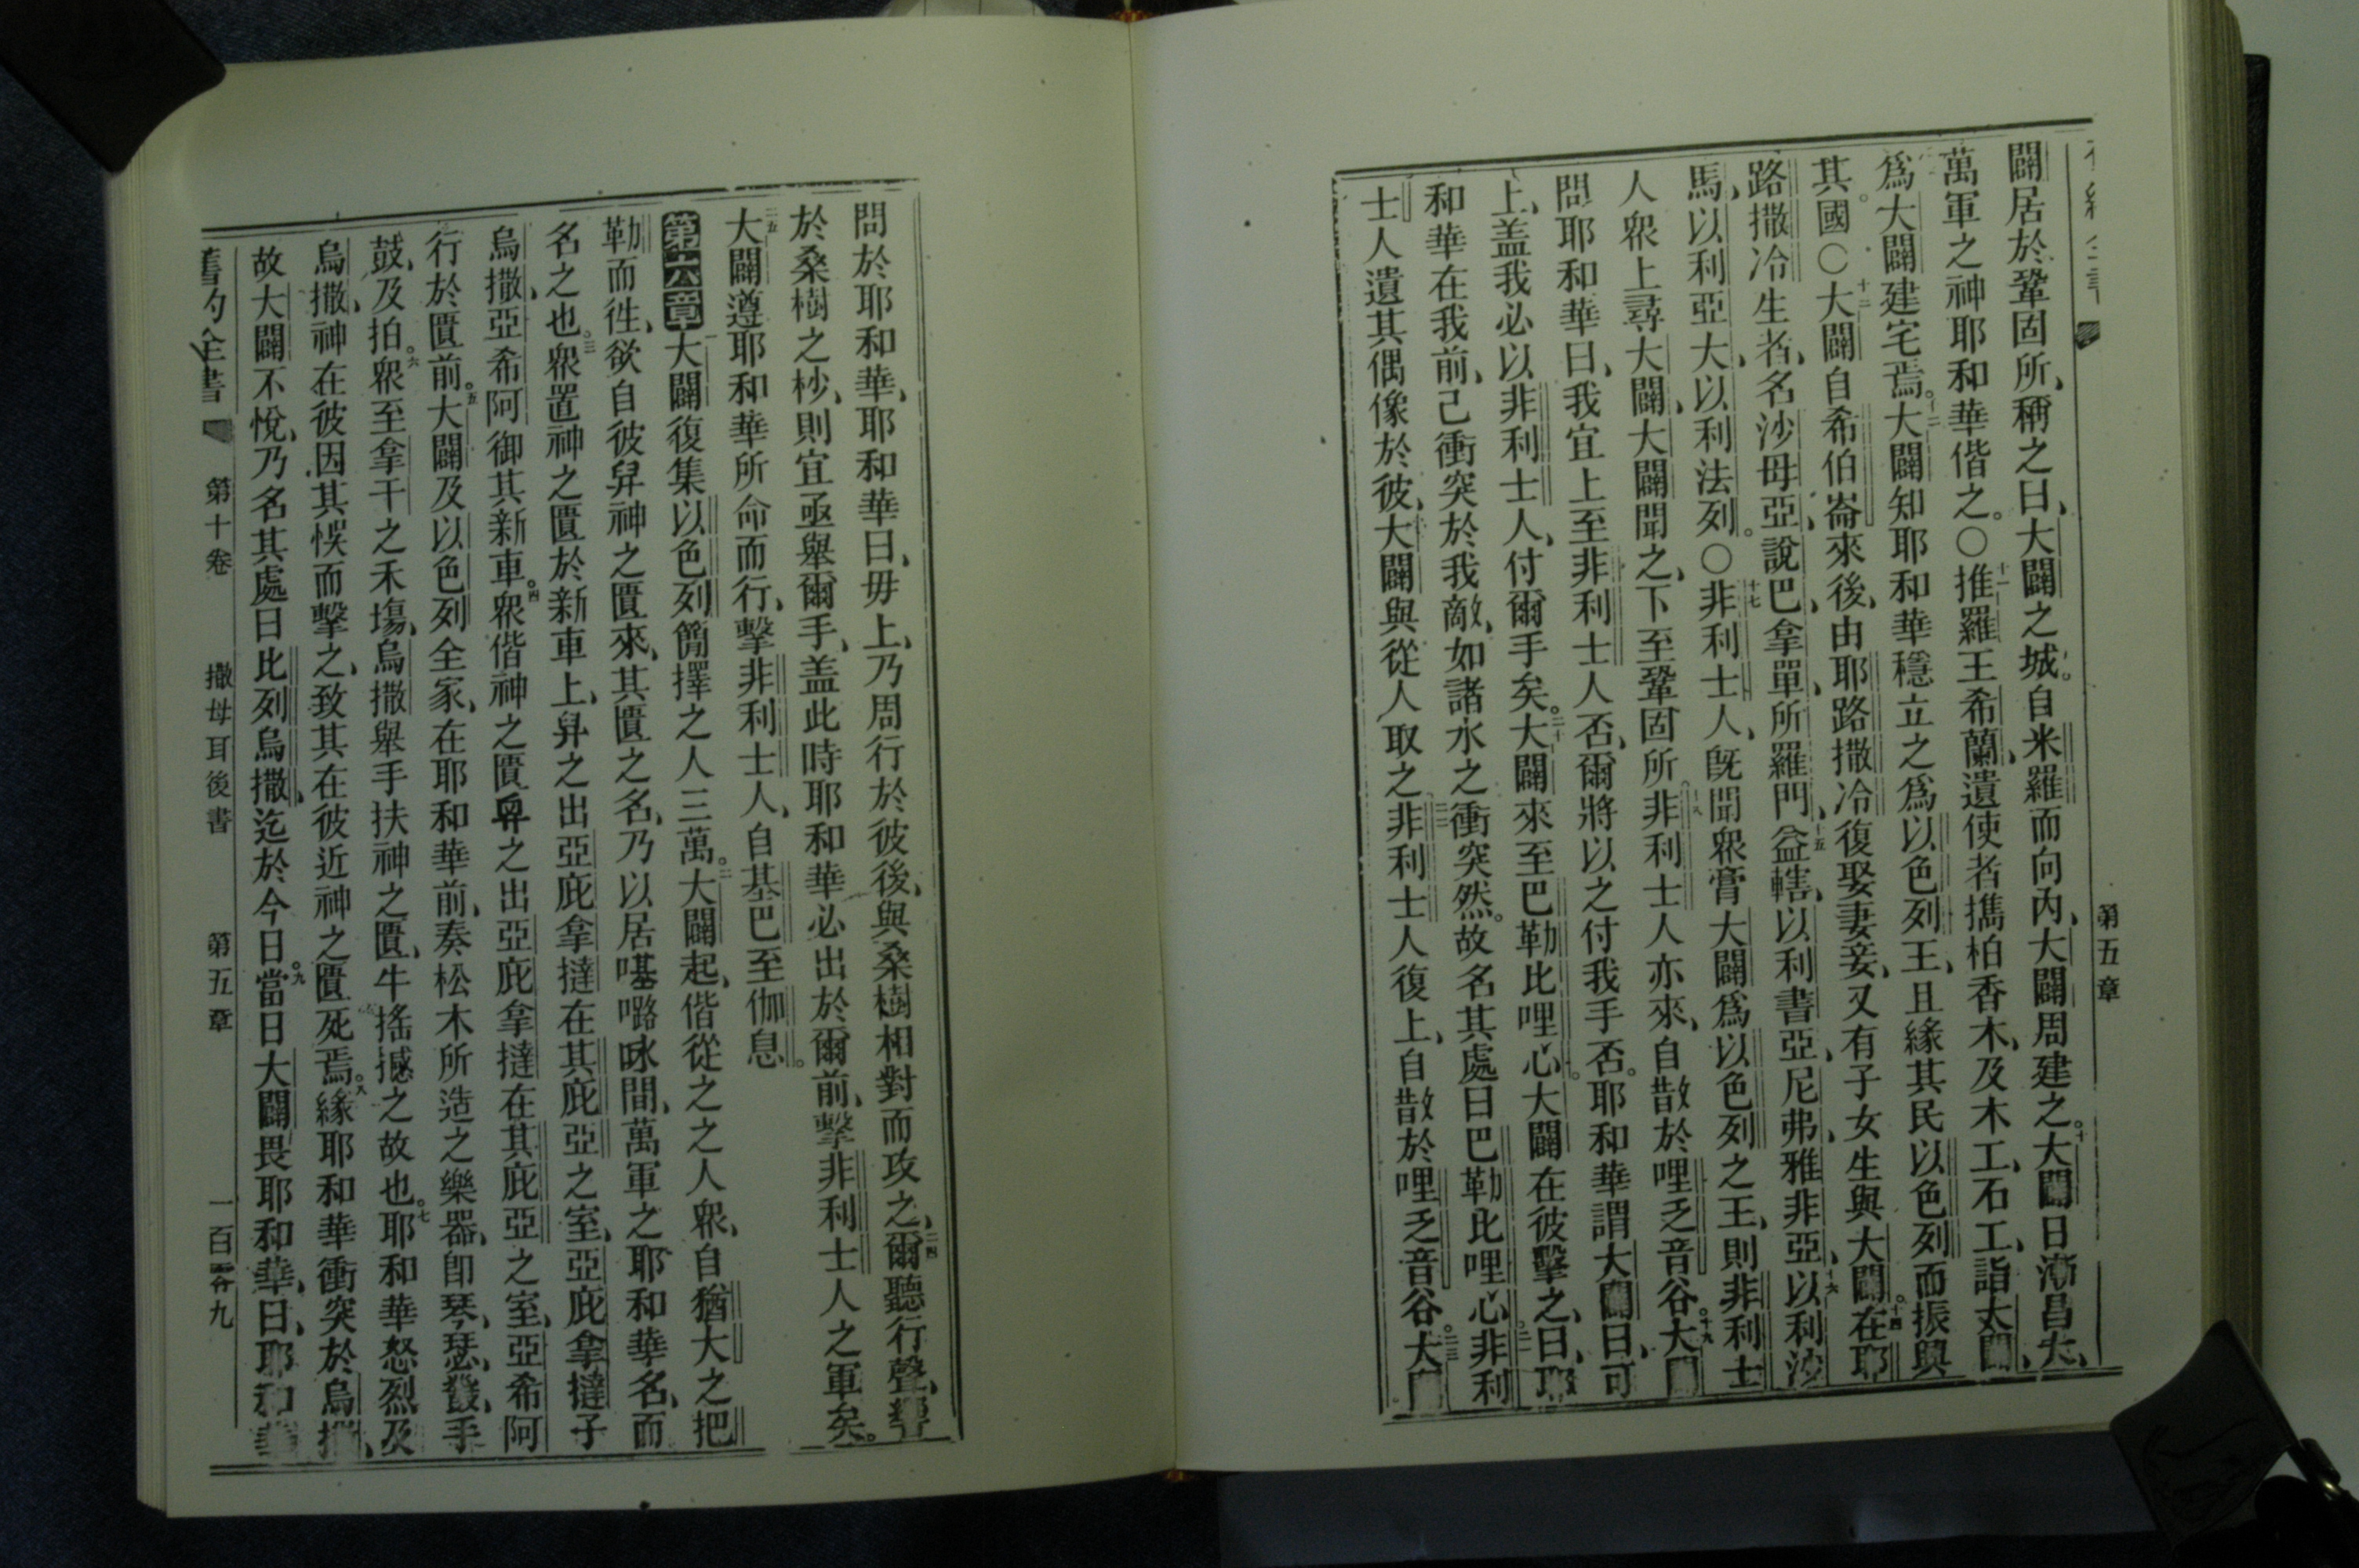 第五章
闢居於鞏固所、稱之曰、大闢之城。自米羅而向內、大闢周建之。十大闢日漸昌大、
萬軍之神耶和華偕之。○十一推羅王希蘭、遣使者攜柏香木、及木工、石工、詣大闢、
爲大闢建宅焉。十二大闢知耶和華穩立之爲以色列王、且緣其民以色列而振興
其國。○十三大闢自希伯崙來後、由耶路撒冷復娶妻妾、又有子女生與大闢。十四在耶
路撒冷生者、名沙毋亞、說巴、拿單、所羅門、十五益轄、以利書亞、尼弗、雅非亞、十六以利沙
馬、以利亞大、以利法列。○十七非利士人、旣聞衆膏大闢爲以色列之王、則非利士
人衆上尋大闢、大闢聞之、下至鞏固所。十八非利士人亦來、自散於哩乏音谷。十九大闢
問耶和華曰、我宜上至非利士人否、爾將以之付我手否。耶和華謂大闢曰、可
上、盖我必以非利士人、付爾手矣。二十大闢來至巴勒比哩心、大闢在彼擊之、曰、耶
和華在我前、己衝突於我敵、如諸水之衝突然。故名其處曰巴勒比哩心。二一非利
士人遺其偶像於彼、大闢與從人取之。二二非利士人復上、自散於哩乏音谷。二三大闢
問於耶和華、耶和華曰、毋上、乃周行於彼後、與桑樹相對而攻之、二四爾聽行聲、
於桑樹之杪、則宜亟舉爾手、盖此時耶和華必出於爾前、擊非利士人之軍矣。
二五大闢遵耶和華所命而行、擊非利士人、自基巴至伽息。
第六章大闢復集以色列簡擇之人三萬。二大闢起、偕從之之人衆、自猶大之把
勒而徃、欲自彼舁神之匱來、其匱之名、乃以居㗲嚧咏間、萬軍之耶和華名、而
名之也。三衆置神之匱於新車上、舁之出亞庇拿撻在其庇亞之室、亞庇拿撻子
烏撒、亞希阿御其新車。四衆偕神之匱舁之出亞庇拿撻在其庇亞之室、亞希阿
行於匱前。五大闢及以色列全家、在耶和華前、奏松木所造之樂器、卽琴、瑟、鼗、手
鼓、及拍。六衆至拿干之禾塲、烏撒舉手扶神之匱、牛搖撼之故也。七耶和華怒烈及
烏撒、神在彼因其悞而擊之、致其在彼近神之匱死焉。八緣耶和華衝突於烏撒、
故大闢不悅、乃名其處曰比列烏撒、迄於今日。九當日大闢畏耶和華、曰、耶和華
舊約全書 第十卷 撒母耳後書 第五章 一百零九